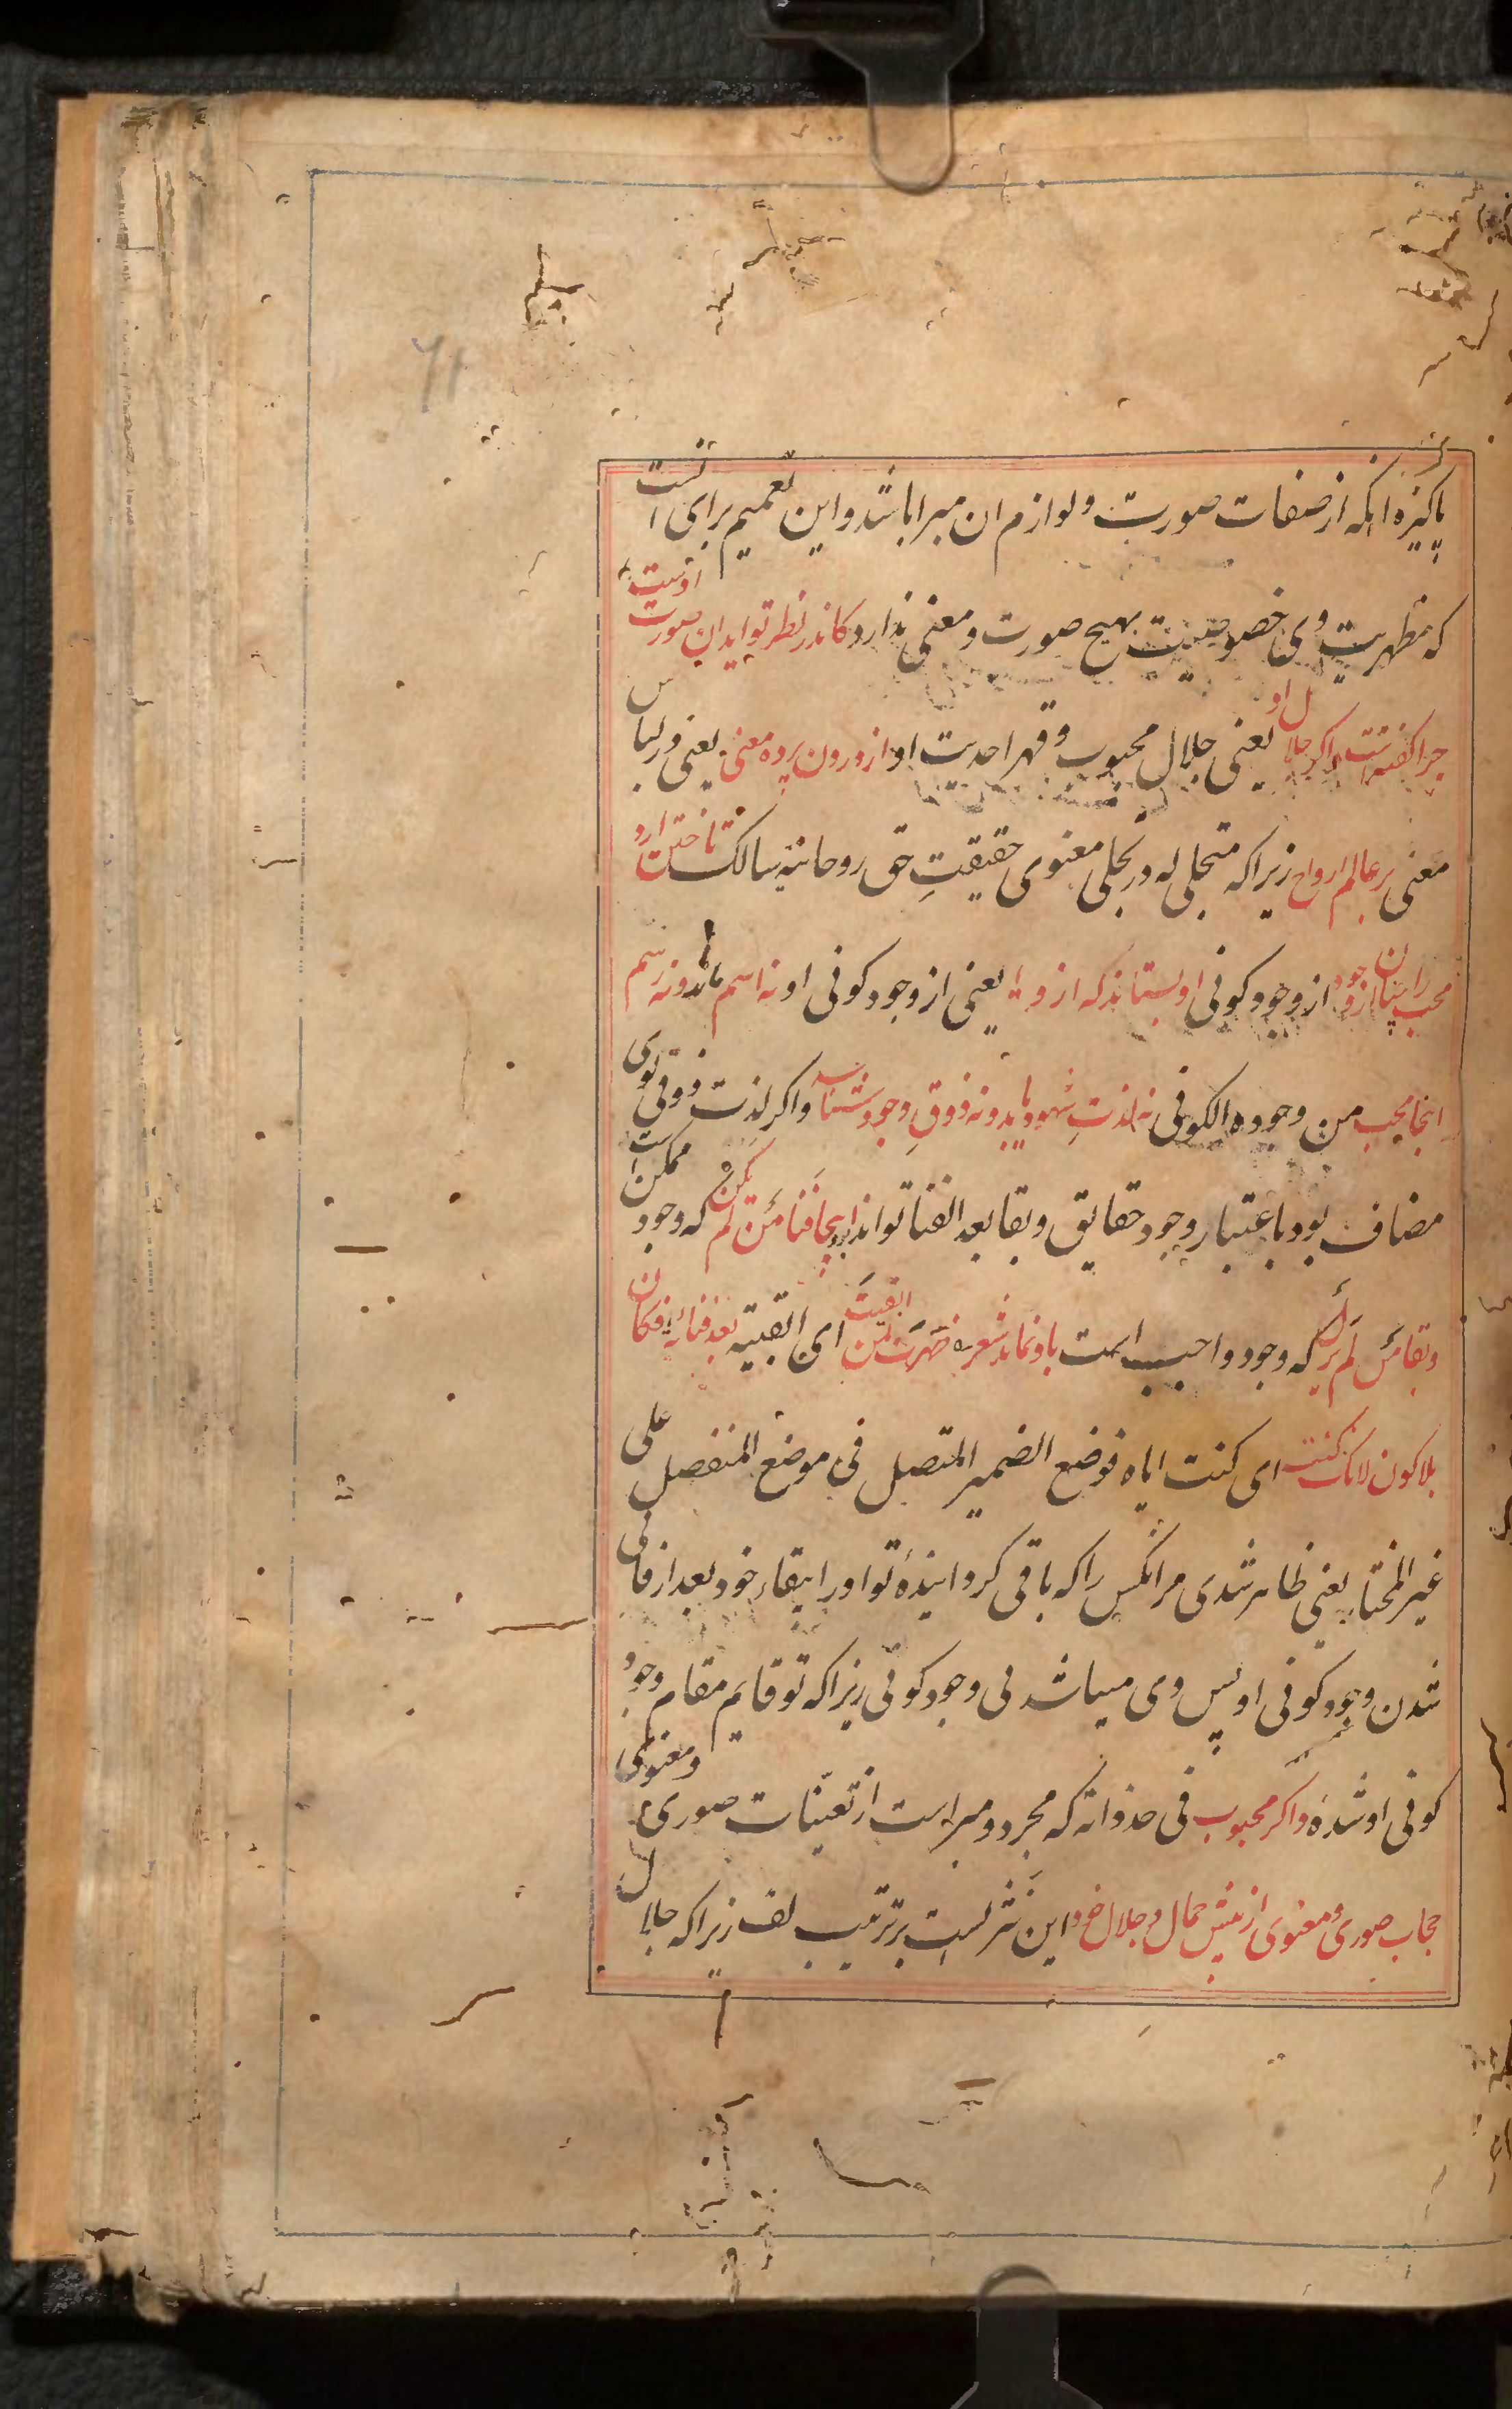 پاکیزه انکه از صفات صورت و لوازم ان مبرا باشد و این تعمیم برای انست
که مظهریت وی خصوصیت بهیچ صورت و معنی ندارد کاندر نظر تو اید ان صورت اوست
چرا کفته است و اکر جلال او یعنی جلال محبوب و قهر احدیت او از درون پرده معنی یعنی در لباس
معنی بر عالم ارواح زیرا که متجلی له در تجلی معنوی حقیقتِ حق روحانیة سالک تاختن ارد
محب را چنان از وجود از وجود کونی او بستاند که از و یعنی از وجود کونی او نه اسم ماند و نه رسم
اینجا محب من وجوده الکونی نه لذتِ شهود یابد و نه ذوقِ وجود شناسد و اکر لذت ذوقی توی
مضاف بود باعتبار وجود حقایق و بقا بعد الفنا تواند بود اینجا فَنا مَن لَم یَکُن که وجود ممکن است
و بقا مَن لَم یَزَل که وجود واجب است باو نماید شعر ظَهَرَتَ لمن ابقیتَ ای ابقیته بعد فنائه فکان
بلا کون لانک کنته ای کنت ایاه فوضع الضمیر المتصل فی موضع المنفصل علی
غیر المختار یعنی ظاهر شدی مر انکس را که باقی کردانیدۀ تو او را بقاء خود بعد از فانی
شدن وجود کونی او پس وی میباشد بی وجود کونی زیرا که تو قایم مقام وجود
کونی او شدۀ و اکر محبوب فی حد ذاته که مجرد و مبراست از تعینات صوری و معنوی بی
حجاب صوری و معنوی از پیش جمال و جلال خود این نشر لیست بر ترتیب لف زیرا که جلال
۶۱